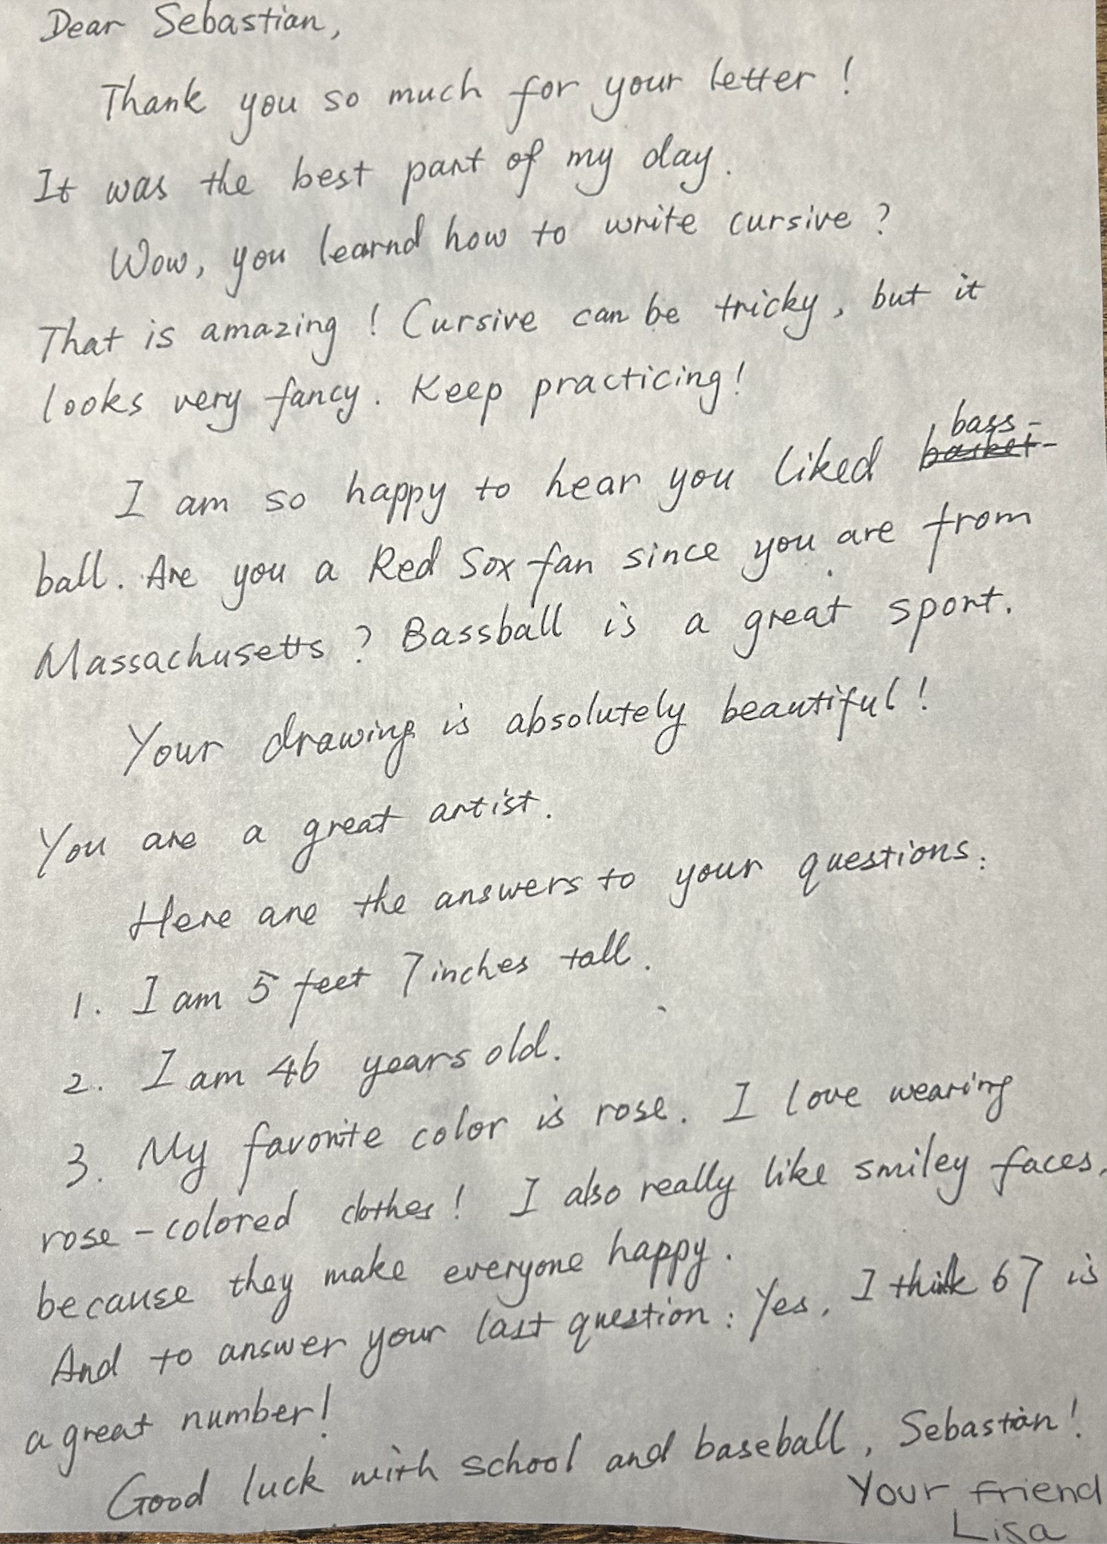 Dear Sebastian,
Thank you so much for your letter!
It was the best part of my day.
Wow, you learnd how to write cursive?
That is amazing! Cursive can be tricky, but it
looks very fancy. Keep practicing!
bass-
I am so happy to hear you liked basket-
ball. Are you a Red Sox fan since you are from
Massachusetts? Bassball is a great sport.
Your drawing is absolutely beautiful!
You are a great artist.
Here are the answers to your questions:
1. I am 5 feet 7 inches tall.
2. I am 46 years old.
3. My favorite color is rose. I love wearing
rose-colored clothes! I also really like smiley faces,
because they make everyone happy.
And to answer your last question: Yes, I think 67 is
a great number!
Good luck with school and baseball, Sebastian!
Your friend
Lisa